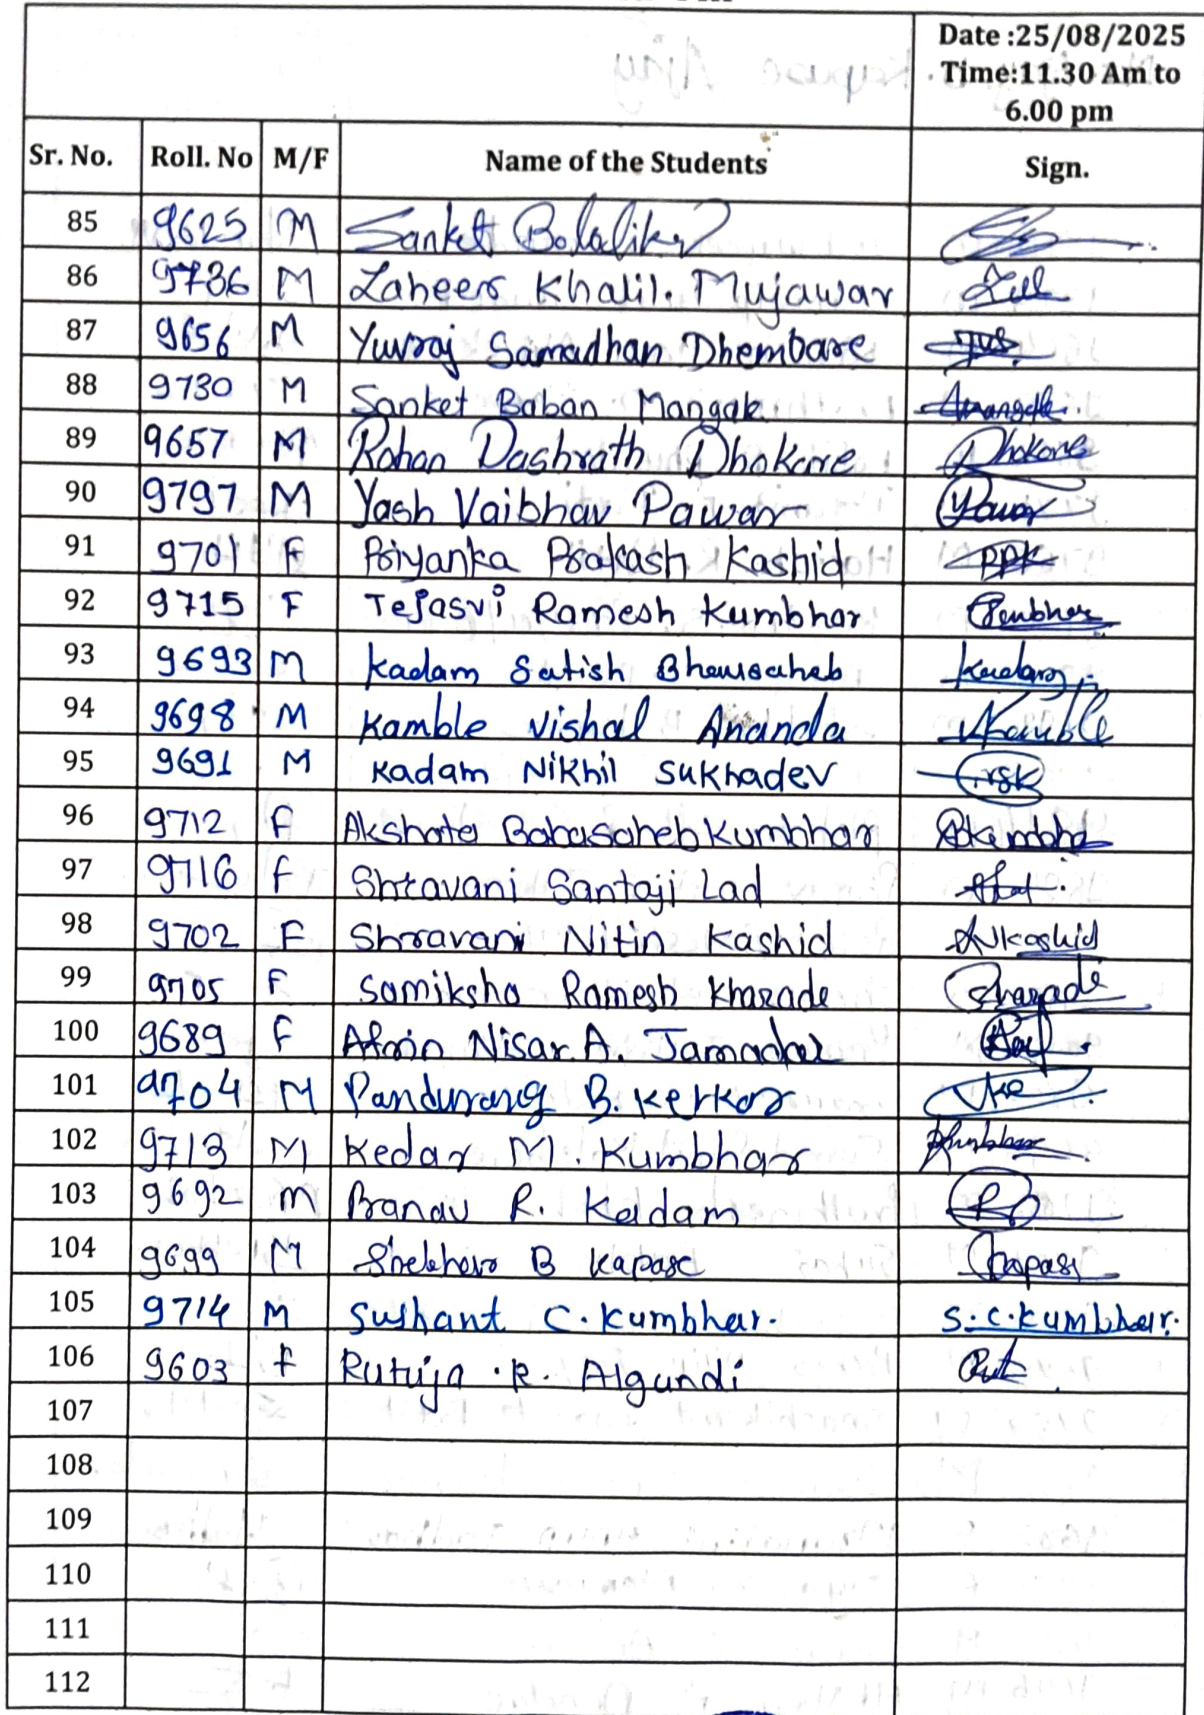 Date :25/08/2025
Time:11.30 Am to
6.00 pm
Sr. No. Roll. No M/F Name of the Students Sign.
85 9625 M Sanket
86 9736 M Zaheer Khalil. Mujawar
87 9656 M Yuvraj Samadhan Dhembare
88 9730 M Sanket Baban Mangale
89 9657 M Rohan Dashrath Dhokare Dhokare
90 9797 M Yash Vaibhav Pawar Pawar
91 9701 F Priyanka Prakash Kashid PPK
92 9715 F Tejasvi Ramesh Kumbhar
93 9693 M Kadam Satish Bhausaheb Kadam
94 9698 M Kamble Vishal Ananda VKamble
95 9691 M Kadam Nikhil Sukhadev NSK
96 9712 F Akshata Babasaheb Kumbhar
97 9716 f Shravani Santaji Lad
98 9702 F Shravani Nitin Kashid Kashid
99 9705 F Samiksha Ramesh Kharade Sharade
100 9689 F Afrin Nisar A. Jamadar
101 9704 M Pandurang B. Kerkar
102 9713 M Kedar M. Kumbhar
103 9692 M Pranav R. Kadam
104 9699 M Shekhar B Kapase Kapase
105 9714 M Sushant C. Kumbhar. S.C.Kumbhar.
106 9603 f Rutuja .R. Algundi Rut
107
108
109
110
111
112